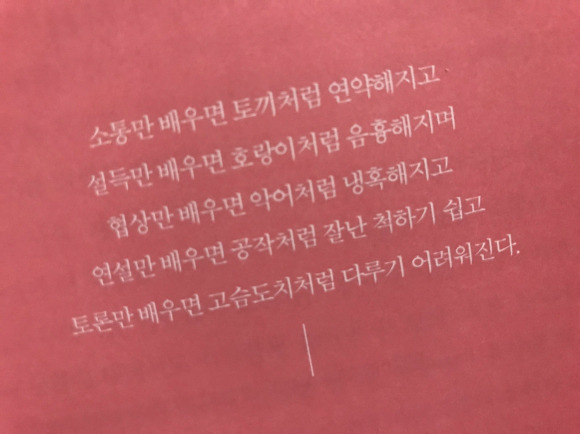 소통만 배우면 토끼처럼 연약해지고
설득만 배우면 호랑이처럼 음흉해지며
협상만 배우면 악어처럼 냉혹해지고
연설만 배우면 공작처럼 잘난 척하기 쉽고
토론만 배우면 고슴도치처럼 다루기 어려워진다.